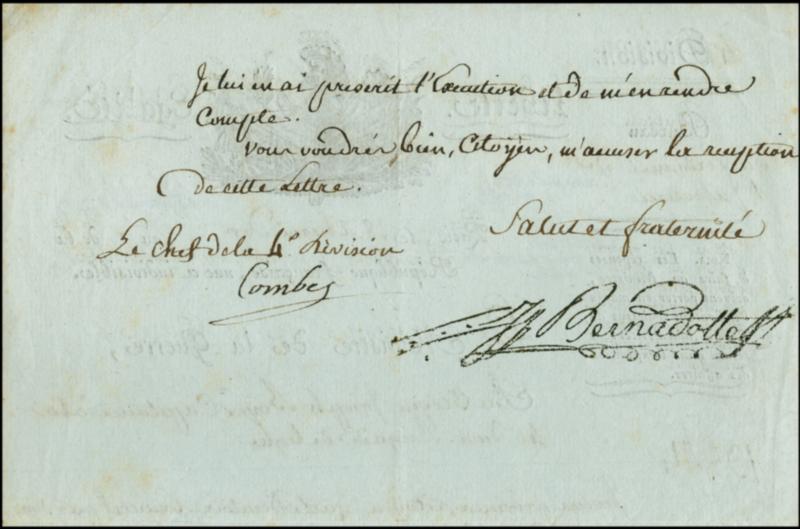 Je lui en ai prescrit l'Execution et de m'en rendre
Compte.
Vous voudrés bien, Citoyen, m'acuser la reception
de cette Lettre.
Salut et fraternité
Le Chef de la 4e Division
Combes
Bernadotte